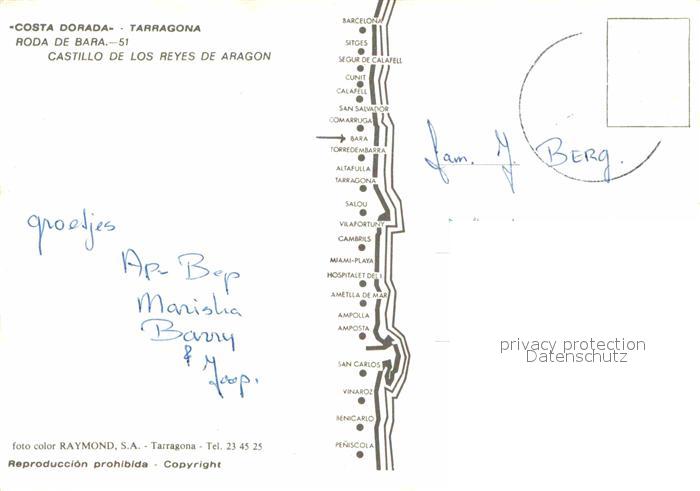 "COSTA DORADA" - TARRAGONA
RODA DE BARA.-51
CASTILLO DE LOS REYES DE ARAGON
groetjes
Ap- Bep
Mariska
Barry
& Joop.
foto color RAYMOND, S.A. - Tarragona - Tel. 23 45 25
Reproducción prohibida - Copyright
BARCELONA
SITGES
SEGUR DE CALAFELL
CUNIT
CALAFELL
SAN SALVADOR
COMARRUGA
BARA
TORREDEMBARRA
ALTAFULLA
TARRAGONA
SALOU
VILAFORTUNY
CAMBRILS
MIAMI-PLAYA
HOSPITALET DEL I
AMETLLA DE MAR
AMPOLLA
AMPOSTA
SAN CARLOS
VINAROZ
BENICARLO
PEÑISCOLA
fam. J. BERG.
privacy protection
Datenschutz